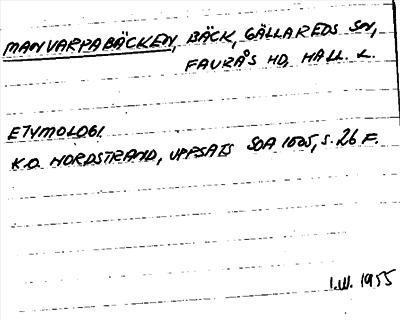 MANVARPABÄCKEN, BÄCK, GÄLLAREDS SN,
FAURÅS HD, HALL. L.
ETYMOLOGI
K.O. NORDSTRAND, UPPSATS SOA 1605, S. 26 F.
I.W. 1955